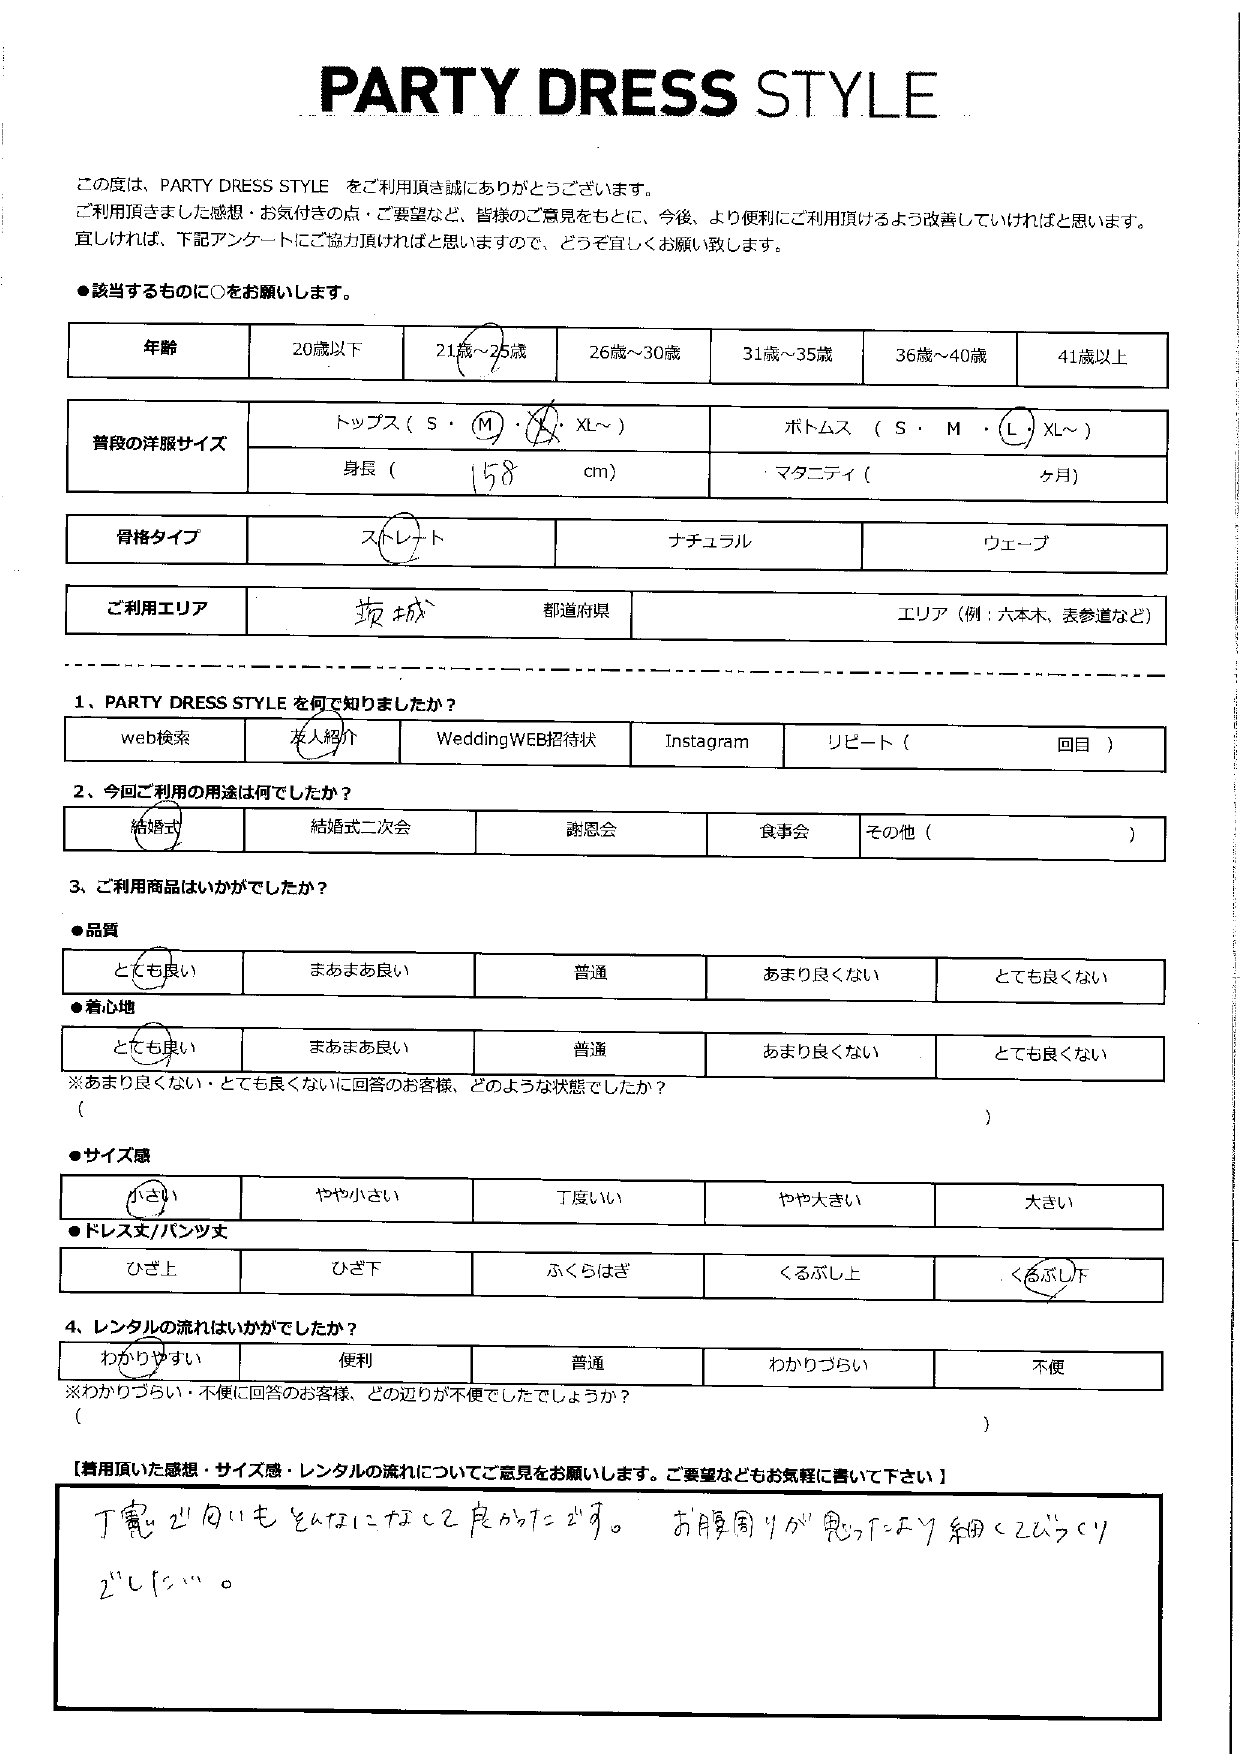 PARTY DRESS STYLE
この度は、PARTY DRESS STYLE をご利用頂き誠にありがとうございます。
ご利用頂きました感想・お気付きの点・ご要望など、皆様のご意見をもとに、今後、より便利にご利用頂けるよう改善していければと思います。
宜しければ、下記アンケートにご協力頂ければと思いますので、どうぞ宜しくお願い致します。
●該当するものに○をお願いします。
年齢 20歳以下 21歳～25歳 26歳～30歳 31歳～35歳 36歳～40歳 41歳以上
普段の洋服サイズ トップス ( S ・ M ・ L ・ XL～ ) ボトムス ( S ・ M ・ L ・ XL～ )
身長 ( 158 cm) マタニティ ( ヶ月)
骨格タイプ ストレート ナチュラル ウェーブ
ご利用エリア 茨城 都道府県 エリア（例：六本木、表参道など）
1、PARTY DRESS STYLE を何で知りましたか？
web検索 友人紹介 WeddingWEB招待状 Instagram リピート ( 回目 )
2、今回ご利用の用途は何でしたか？
結婚式 結婚式二次会 謝恩会 食事会 その他 ( )
3、ご利用商品はいかがでしたか？
●品質
とても良い まあまあ良い 普通 あまり良くない とても良くない
●着心地
とても良い まあまあ良い 普通 あまり良くない とても良くない
※あまり良くない・とても良くないに回答のお客様、どのような状態でしたか？
( )
●サイズ感
小さい やや小さい 丁度いい やや大きい 大きい
●ドレス丈/パンツ丈
ひざ上 ひざ下 ふくらはぎ くるぶし上 くるぶし下
4、レンタルの流れはいかがでしたか？
わかりやすい 便利 普通 わかりづらい 不便
※わかりづらい・不便に回答のお客様、どの辺りが不便でしたでしょうか？
( )
【着用頂いた感想・サイズ感・レンタルの流れについてご意見をお願いします。ご要望などもお気軽に書いて下さい】
丁寧で匂いもそんなになくて良かったです。 お腹周りが思ったより細くてびっくり
でした…。